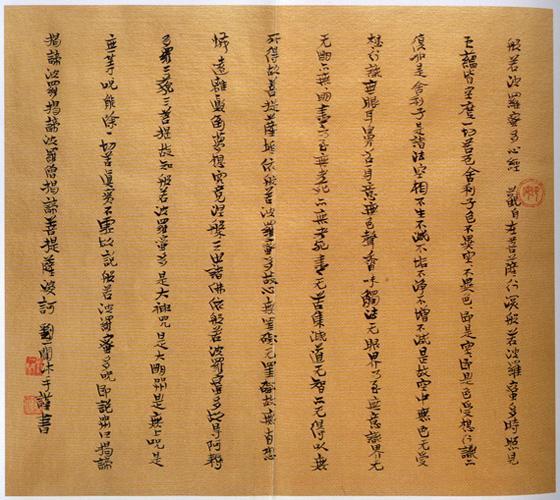 般若波羅蜜多心經 觀自在菩薩行深般若波羅蜜多時照見
五蘊皆空度一切苦厄舍利子色不異空不異色即是空即是色受想行識亦
復如是舍利子是諸法空相不生不滅不垢不淨不增不減是故空中無色无受
想行識無眼耳鼻舌身意無色聲香味觸法无眼界乃至無意識界无
无明亦無明盡乃至無老死亦無老死盡无苦集滅道无智亦无得以無
所得故菩提薩埵依般若波羅蜜多故心無罣礙无罣礙故無有恐
怖遠離顛倒夢想究竟涅槃三世諸佛依般若波羅蜜多故得阿耨
多羅三藐三菩提故知般若波羅蜜多是大神咒是大明咒是無上咒是
無等咒能除一切苦真實不虛故說般若波羅蜜多咒即說咒曰揭諦
揭諦波羅揭諦波羅僧揭諦菩提薩婆訶 劉沐手謹書